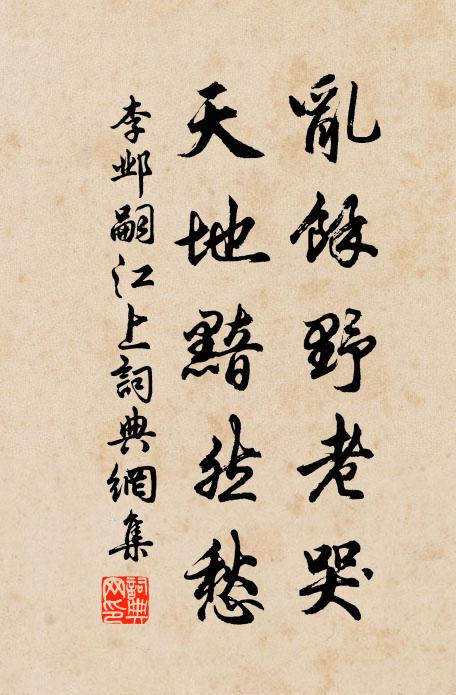 亂餘野老哭
天地黯然愁
李鄴嗣江上詞典網集
詞典